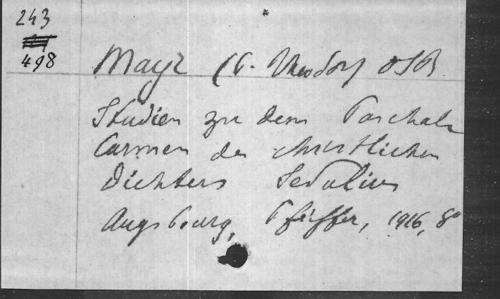 243
498
Mayr (P. Theodor OSB.
Studien zu dem Paschale
Carmen des christlichen
Dichters Sedulius
Augsbourg, Pfeiffer, 1916, 8°